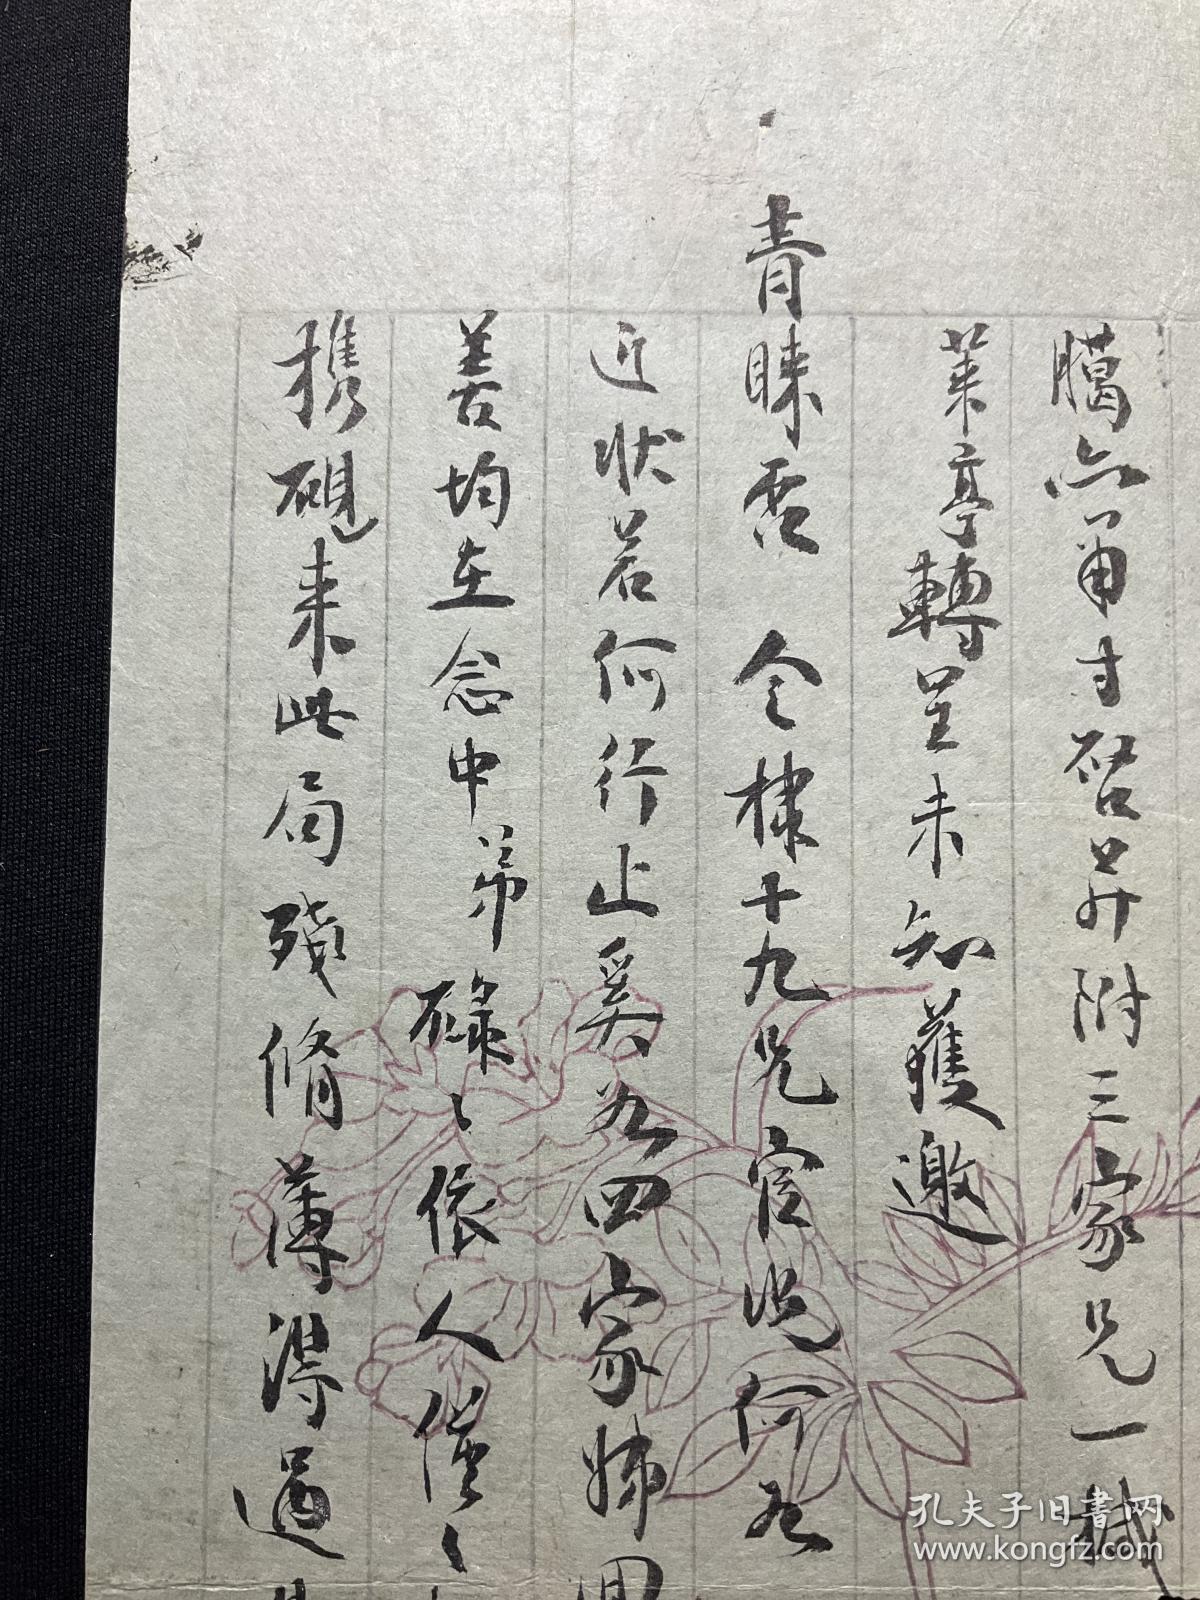 臈亦甫寸啓並附三家兄一椷
菉亭轉呈未知獲邀
青睞否 令棣十九兄官況何如
近狀若何行止奚如四家姊
善均在念中弟碌〻依人僅〻
携硯來此局殘脩薄得過
孔夫子旧书网
www.kongfz.com